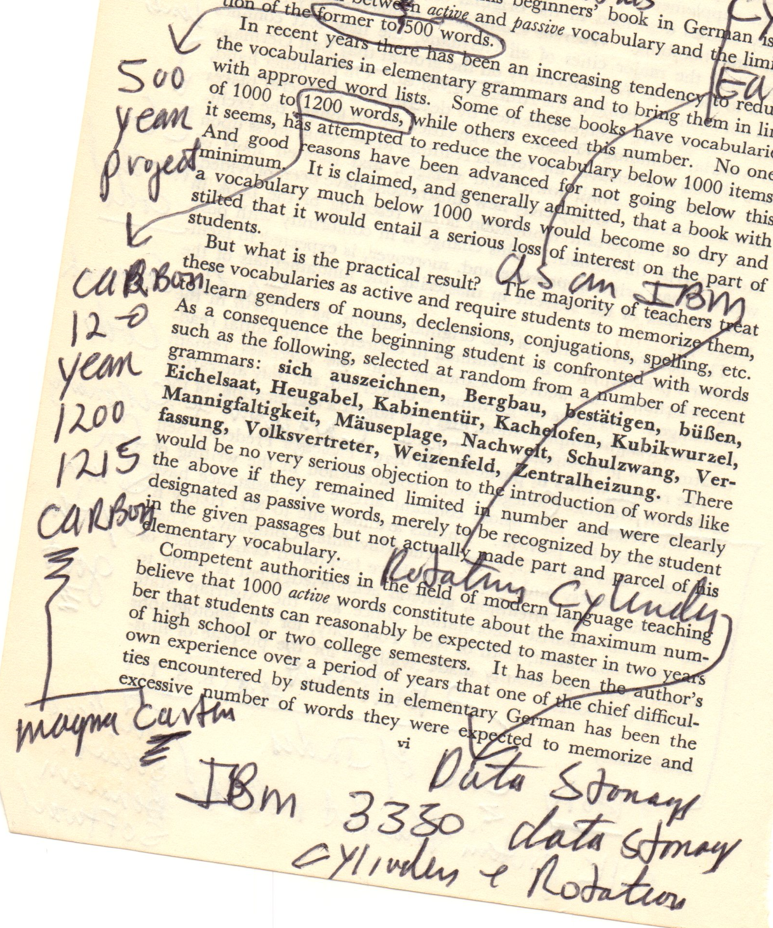 between active and passive vocabulary and the
tion of the former to 500 words.
In recent years there has been an increasing tendency to redu
the vocabularies in elementary grammars and to bring them in li
with approved word lists. Some of these books have vocabularie
of 1000 to 1200 words, while others exceed this number. No one
it seems, has attempted to reduce the vocabulary below 1000 items
And good reasons have been advanced for not going below this
minimum. It is claimed, and generally admitted, that a book with
a vocabulary much below 1000 words would become so dry and
stilted that it would entail a serious loss of interest on the part of
students.
But what is the practical result? The majority of teachers treat
these vocabularies as active and require students to memorize them,
to learn genders of nouns, declensions, conjugations, spelling, etc.
As a consequence the beginning student is confronted with words
such as the following, selected at random from a number of recent
grammars: sich auszeichnen, Bergbau, bestätigen, büßen,
Eichelsaat, Heugabel, Kabinentür, Kachelofen, Kubikwurzel,
Mannigfaltigkeit, Mäuseplage, Nachwelt, Schulzwang, Ver-
fassung, Volksvertreter, Weizenfeld, Zentralheizung. There
would be no very serious objection to the introduction of words like
the above if they remained limited in number and were clearly
designated as passive words, merely to be recognized by the student
in the given passages but not actually made part and parcel of his
elementary vocabulary.
Competent authorities in the field of modern language teaching
believe that 1000 active words constitute about the maximum num-
ber that students can reasonably be expected to master in two years
of high school or two college semesters. It has been the author's
own experience over a period of years that one of the chief difficul-
ties encountered by students in elementary German has been the
excessive number of words they were expected to memorize and
vi
500
year
project
CARBON
120
year
1200
1215
CARBON
magna Carta
as an IBM
Rotating Cylinder
Data Storage
IBM 3330 data storage
Cylinders & Rotation